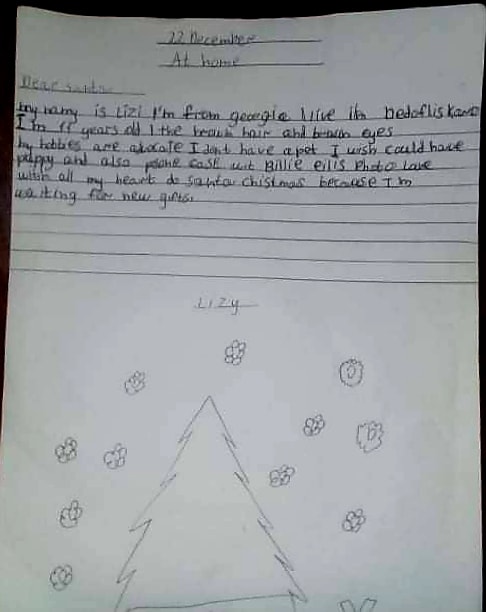 22 December
At home
Dear santa
my namy is Lizi I'm from georgia I live in Dedoflis
I'm 11 years old I the brawn hair and brawn eyes
hy hobbies are advocate I don't have a pet I wish could have
puppy and also phone case wit Billie eilis photo Love
with all my heart do santa Chistmas because I'm
waiting for new gifts.
Lizy